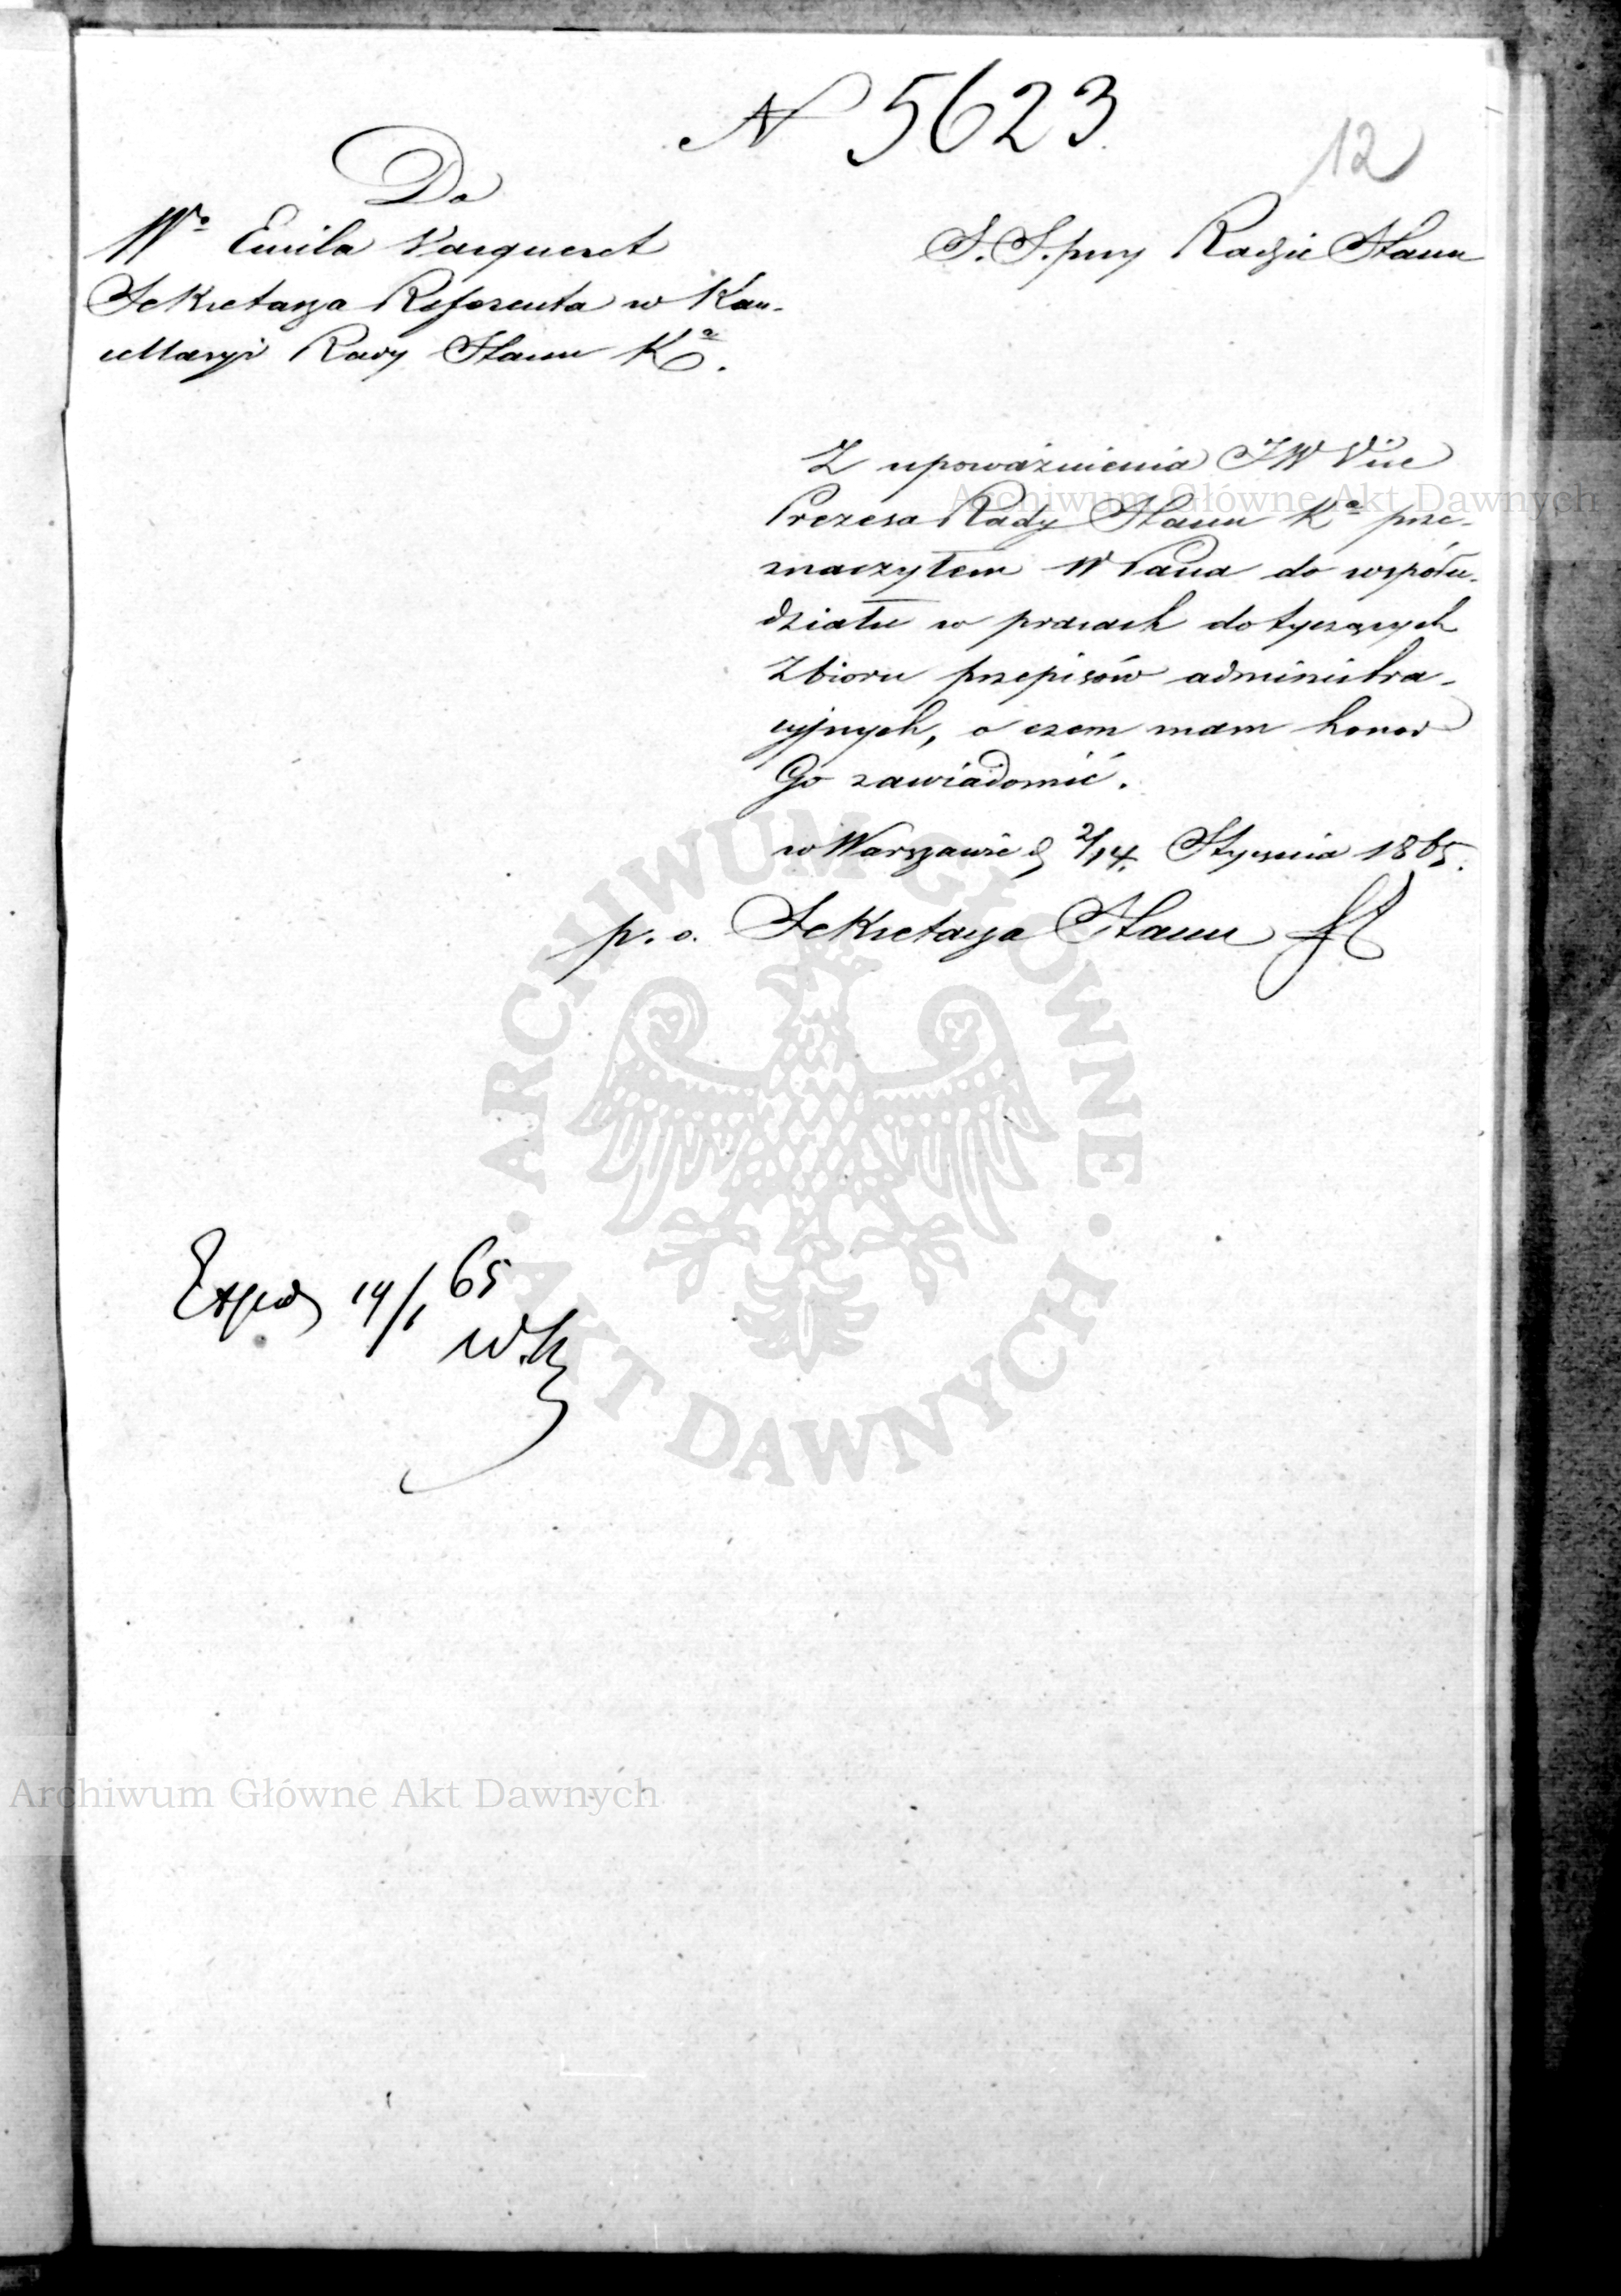 N 5623
12
Do
Wo Emila Vacqueret
Sekretarza Referenta w Kan-
cellaryi Rady Stanu Ka.
S. S. przy Radzie Stanu
Z upoważnienia JW Vice
Prezesa Rady Stanu Ka prze-
znaczyłem W Pana do współu-
działu w pracach dotyczących
Zbioru przepisów administra-
cyjnych, o czem mam honor
Go zawiadomić.
w Warszawie d 2/14 Stycznia 1865.
p. o. Sekretarza Stanu
Exped 14/1 65
W.K
Archiwum Główne Akt Dawnych
ARCHIWUM GŁÓWNE · AKT DAWNYCH ·
Archiwum Główne Akt Dawnych